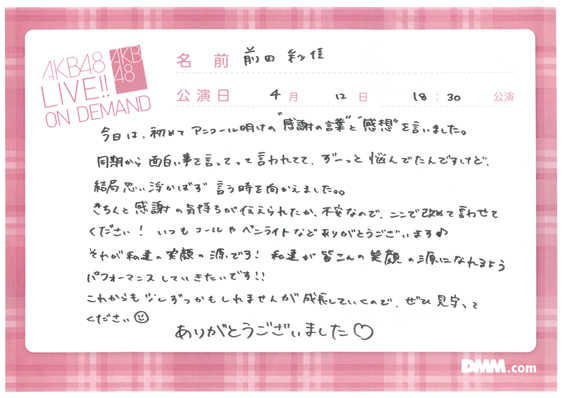 AKB48
LIVE!!
ON DEMAND
AKB
48
名前 前田彩佳
公演日 4月 12日 18:30 公演
今日は、初めてアンコール明けの"感謝の言葉"と"感想"を言いました。
同期から面白い事を言ってって言われてて、ずーっと悩んでたんですけど、
結局思い浮かばず 言う時を向かえました。。
きちんと感謝の気持ちが伝えられたか、不安なので、ここで改めて言わせて
ください! いつもコールやペンライトなどありがとうございます♪
それが私達の笑顔の源です! 私達が皆さんの笑顔の源になれるよう
パフォーマンスしていきたいです!!
これからも少しずつかもしれませんが成長していくので、ぜひ見守って
ください☺
ありがとうございました♡
DMM.com